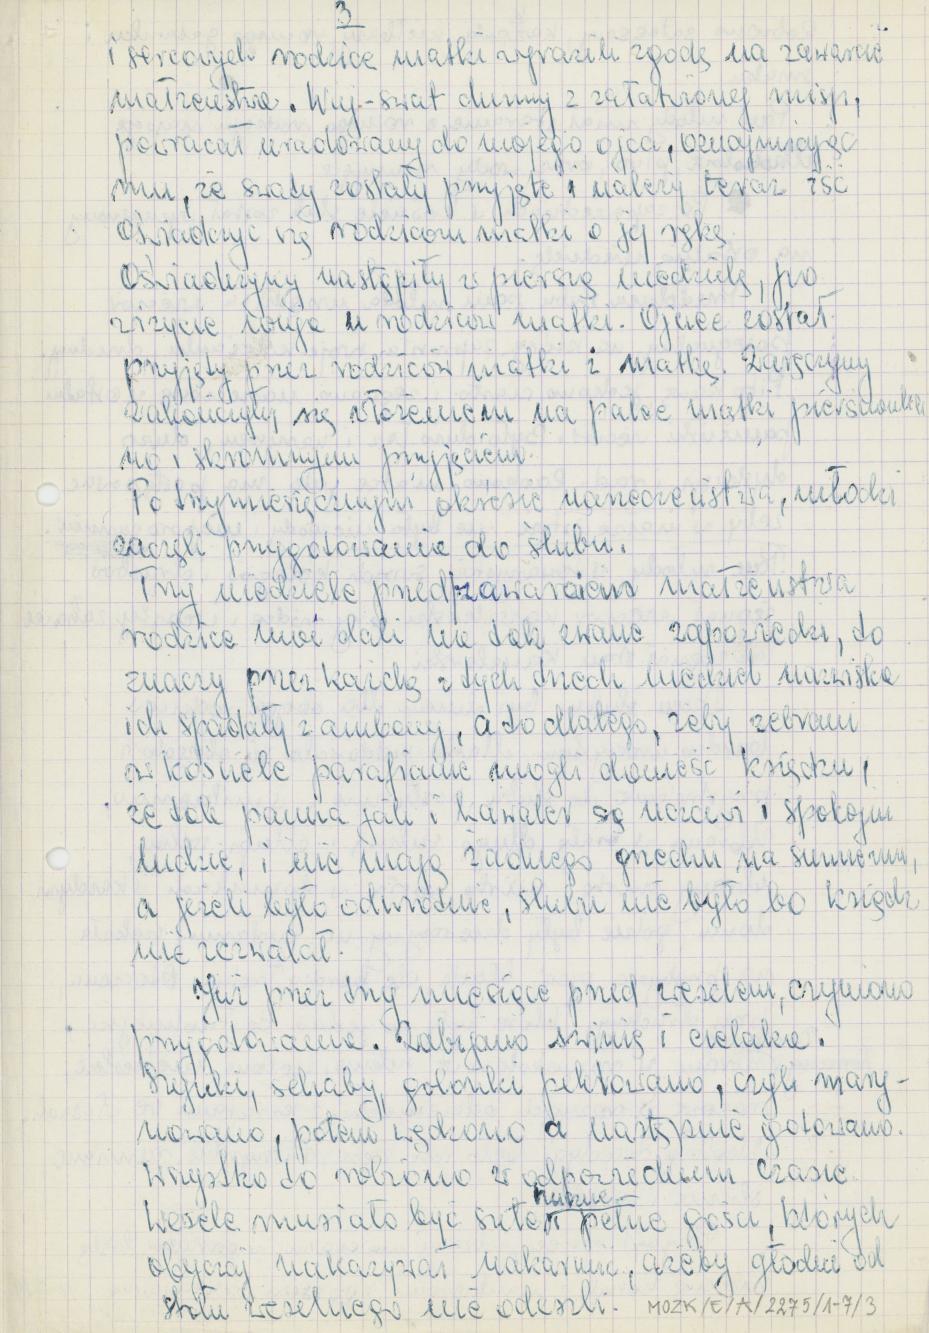 3
i sercowych rodzice matki wyrazili zgodę na zawarcie
małżeństwa. Wuj-swat dumny z załatwionej misji,
powracał uradowany do mojego ojca, oznajmiając
mu, że swaty zostały przyjęte i należy teraz iść
oświadczyć się rodzicom matki o jej rękę.
Oświadczyny nastąpiły w pierszą niedzielę, po
wizycie wuja u rodziców matki. Ojciec został
przyjęty przez rodziców matki i matkę. Zaręczyny
zakończyły się włożeniem na palec matki pierścionka
no i skromnym przyjęciem.
Po trzymiesięcznym okresie narzeczeństwa, młodzi
zaczęli przygotowania do ślubu.
Trzy niedziele przed zawarciem małżeństwa
rodzice moi dali na tak zwane zapowiedzi, to
znaczy przez każdą z tych trzech niedziel nazwiska
ich spadały z ambony, a to dlatego, żeby zebrani
w kościele parafianie mogli donieść księdzu,
że tak panna jak i kawaler są uczciwi i spokojni
ludzie, i nie mają żadnego grzechu na sumieniu,
a jeżeli było odwrotnie, ślubu nie było bo ksiądz
nie zezwalał.
Już przez trzy miesiące przed weselem, czyniono
przygotowania. Zabijano świnię i cielaka.
Szynki, schaby, golonki peklowano, czyli mary-
nowano, potem wędzono a następnie gotowano.
Wszystko to robiono w odpowiednim czasie.
Wesele musiało być sute i pełne gości, których
obyczaj nakazywał nakarmić, ażeby głodni od
stołu weselnego nie odeszli.
MOZK/E/A/2275/1-7/3